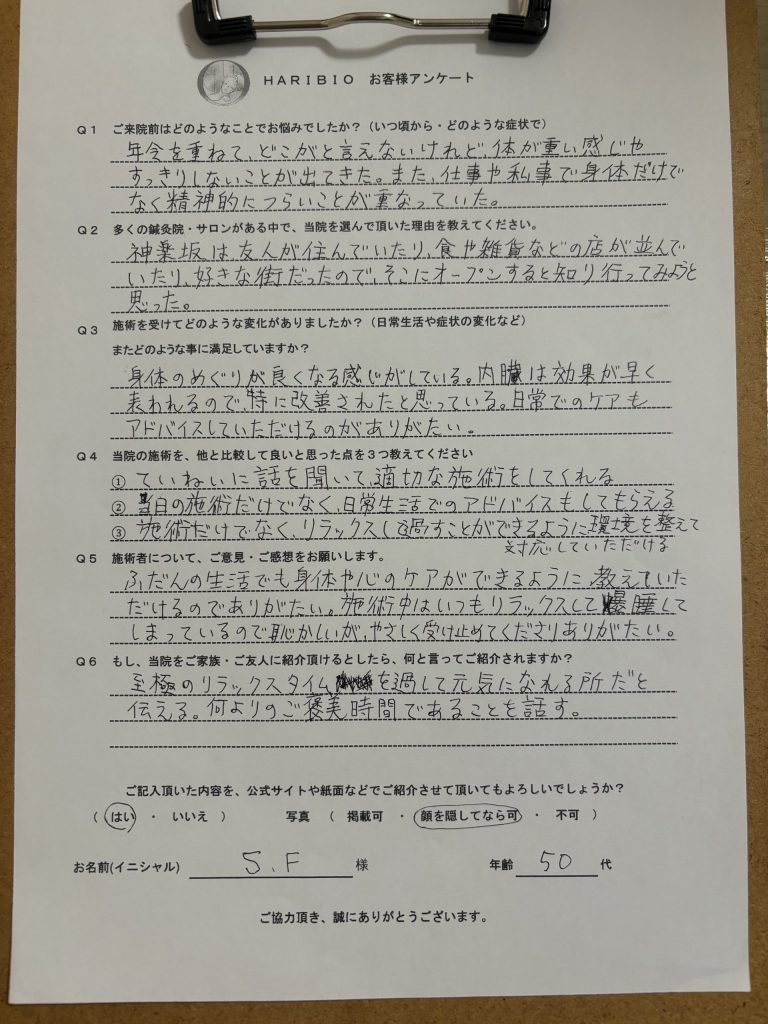 HARIBIO お客様アンケート
Q1 ご来院前はどのようなことでお悩みでしたか？（いつ頃から・どのような症状で）
年令を重ねて、どこがと言えないけれど、体が重い感じや
すっきりしないことが出てきた。また、仕事や私事で身体だけで
なく精神的につらいことが重なっていた。
Q2 多くの鍼灸院・サロンがある中で、当院を選んで頂いた理由を教えてください。
神楽坂は、友人が住んでいたり、食や雑貨などの店が並んで
いたり、好きな街だったので、そこにオープンすると知り行ってみようと
思った。
Q3 施術を受けてどのような変化がありましたか？（日常生活や症状の変化など）
またどのような事に満足していますか？
身体のめぐりが良くなる感じがしている。内臓は効果が早く
表われるので、特に改善されたと思っている。日常でのケアも
アドバイスしていただけるのがありがたい。
Q4 当院の施術を、他と比較して良いと思った点を３つ教えてください
① ていねいに話を聞いて、適切な施術をしてくれる
② 当日の施術だけでなく、日常生活でのアドバイスもしてもらえる
③ 施術だけでなく、リラックスし過すことができるように環境を整えて
対応していただける
Q5 施術者について、ご意見・ご感想をお願いします。
ふだんの生活でも身体や心のケアができるように、教えていた
だけるのでありがたい。施術中はいつもリラックスして爆睡して
しまっているので恥かしいが、やさしく受け止めてくださりありがたい。
Q6 もし、当院をご家族・ご友人に紹介頂けるとしたら、何と言ってご紹介されますか？
至極のリラックスタイムを過して元気になれる所だと
伝える。何よりのご褒美時間であることを話す。
ご記入頂いた内容を、公式サイトや紙面などでご紹介させて頂いてもよろしいでしょうか？
（ はい ・ いいえ ） 写真 （ 掲載可 ・ 顔を隠してなら可 ・ 不可 ）
お名前(イニシャル) S.F 様 年齢 50 代
ご協力頂き、誠にありがとうございます。